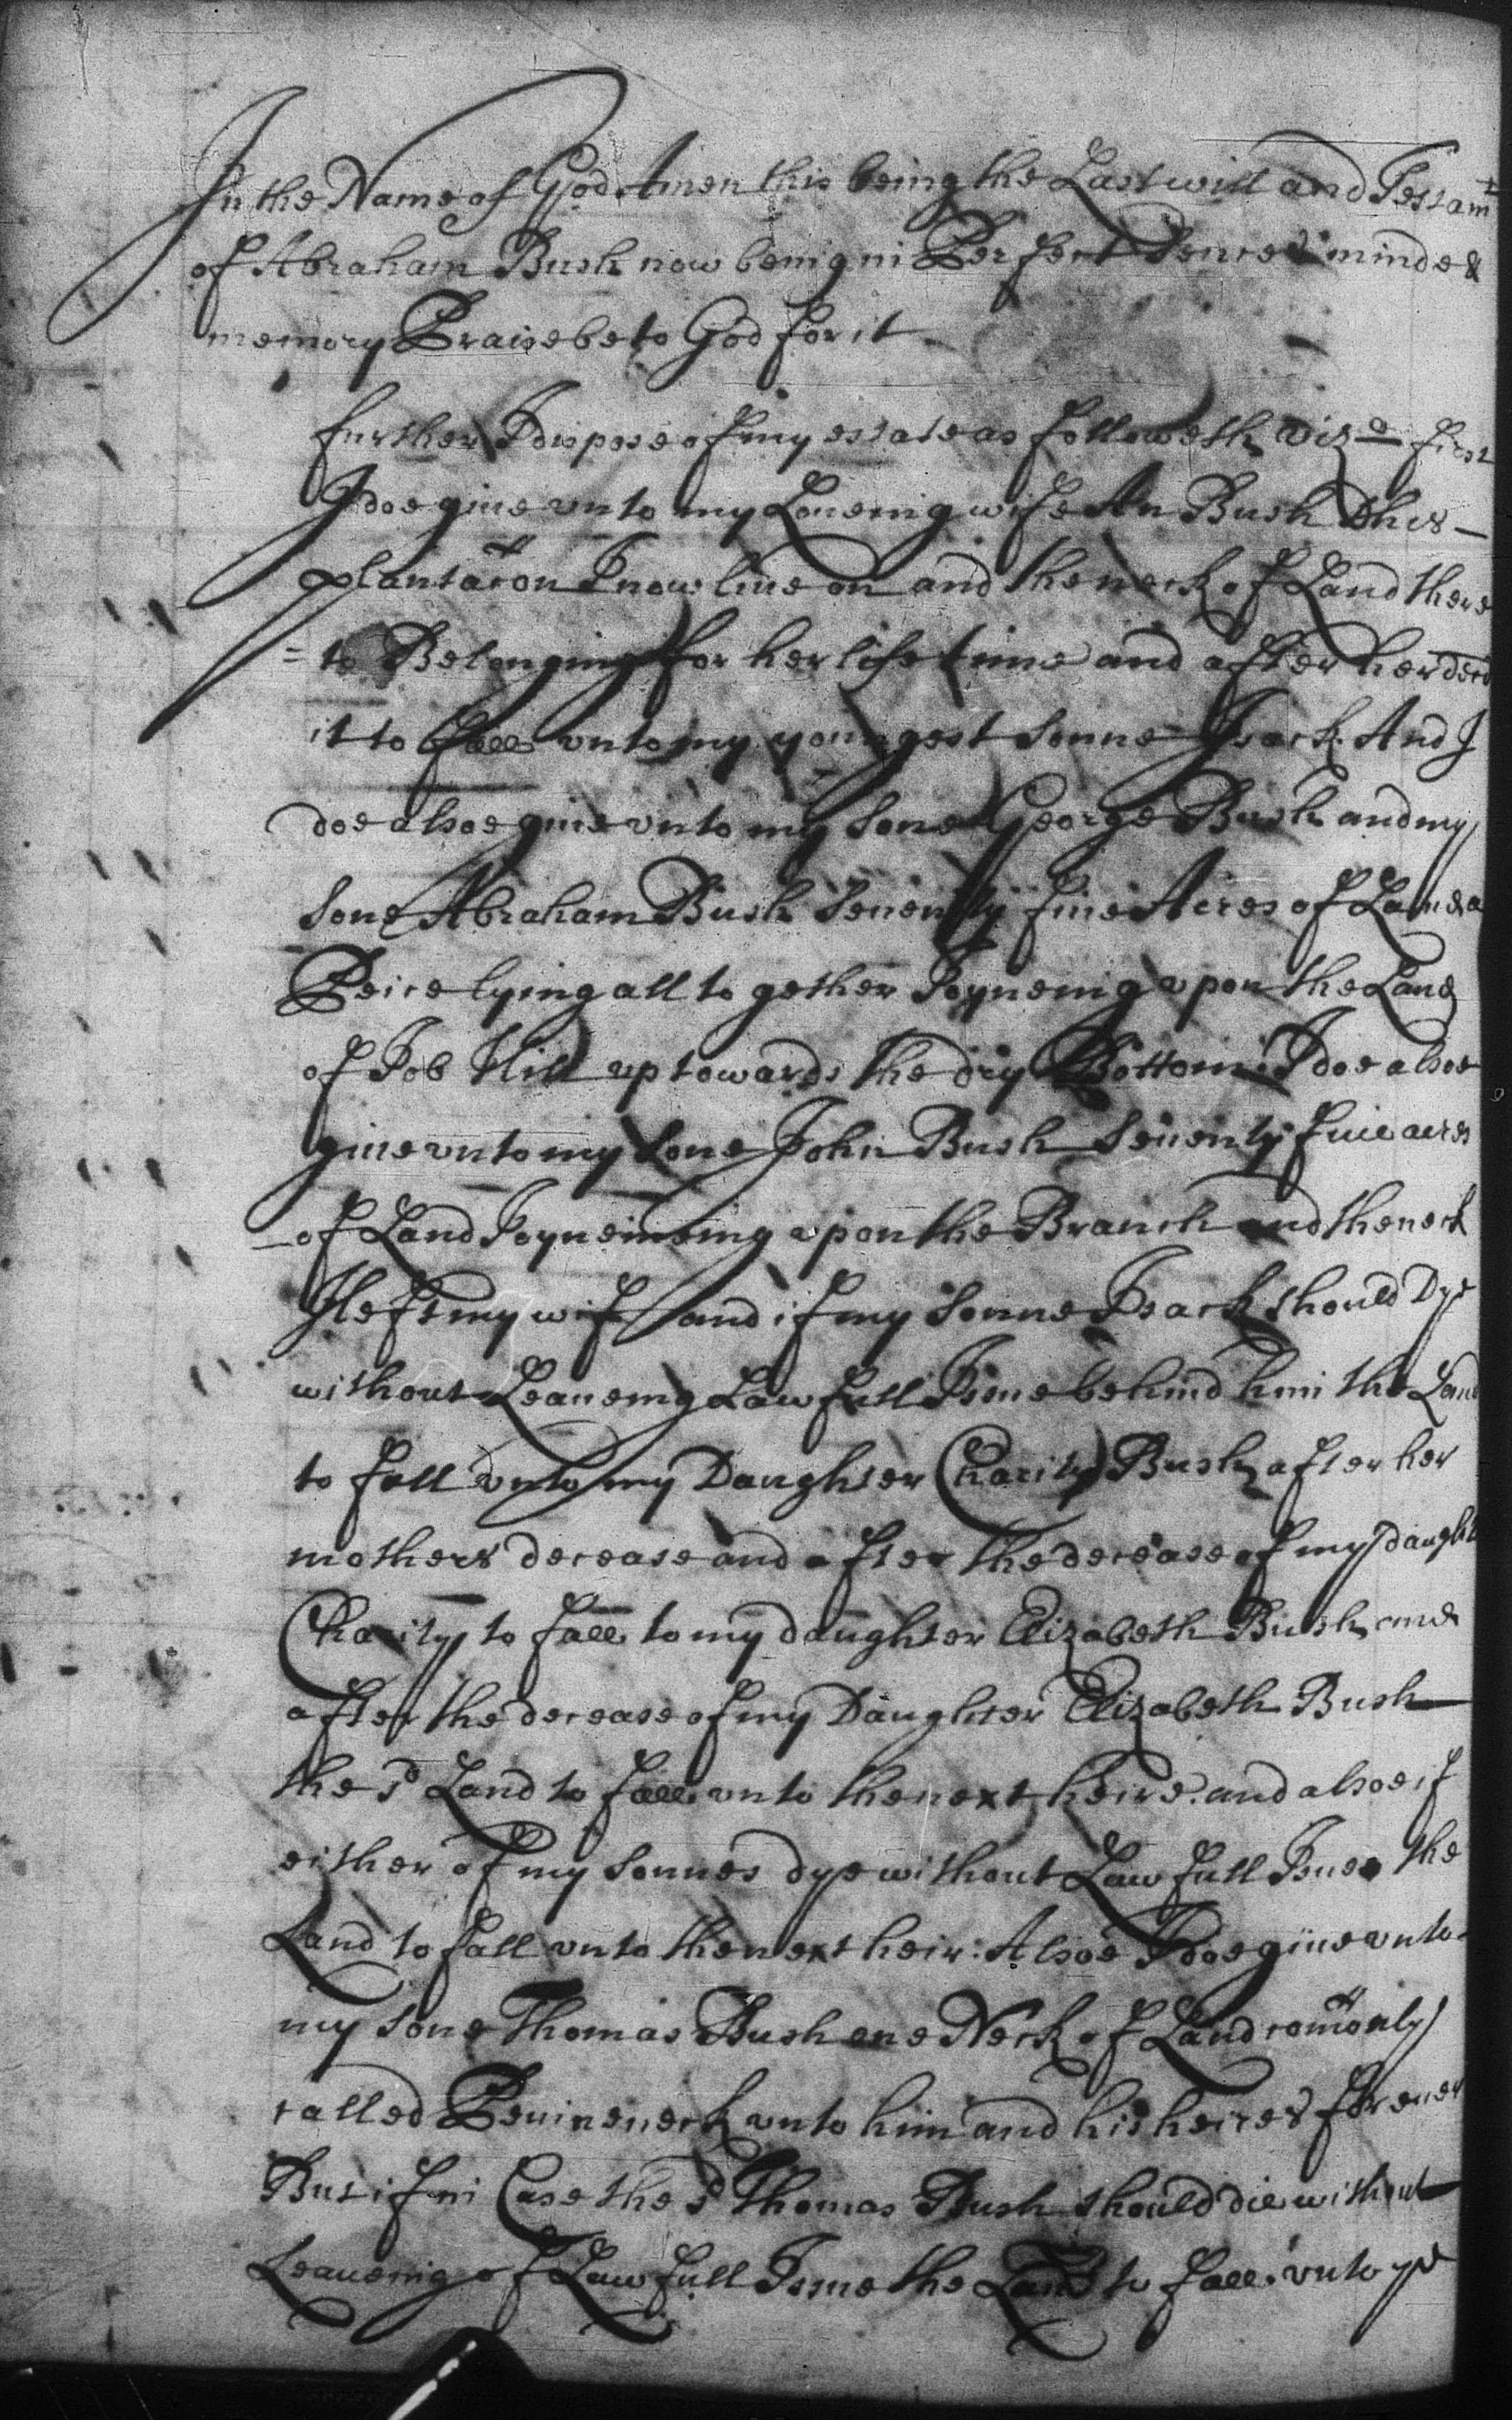 In the Name of God Amen this being the Last will and Testamt
of Abraham Bush now being in Perfect Sence & minde &
memory Praise be to God for it
further I dispose of my estate as followeth vizt first
I doe giue vnto my Loueing wife An Bush this
plantacon I now liue on and the neck of Land there
= to Belonging for her life time and after her decd
it to fall vnto my youngest Sonne Isack. And I
doe alsoe giue vnto my Sone George Bush and my
Sone Abraham Bush Seuenty fiue Acres of Land a
Peice lying all to gether Joyneing vpon the Land
of Job Hill vp towards the dry Bottom I doe alsoe
giue vnto my Sone John Bush Seuenty fiue acres
of Land Joyneineing vpon the Branch and the neck
I left my wife and if my Sonne Isack should Dye
without Leaueing Lawfull Issue behind him the Land
to fall vnto my Daughter Charity Bush after her
mothers decease and after the decease of my daughtr
Charity to fall to my daughter Elizabeth Bush and
after the decease of my Daughter Elizabeth Bush
the sd Land to fall vnto the next heire. and alsoe if
either of my Sonnes dye without Lawfull Issue the
Land to fall vnto the next heir: Alsoe I doe giue vnto
my Sone Thomas Bush one Neck of Land comonly
called Peuineneck vnto him and his heires foreuer
But if in Case the sd Thomas Bush should die without
Leaueing of Lawfull Issue the Land to fall vnto ye